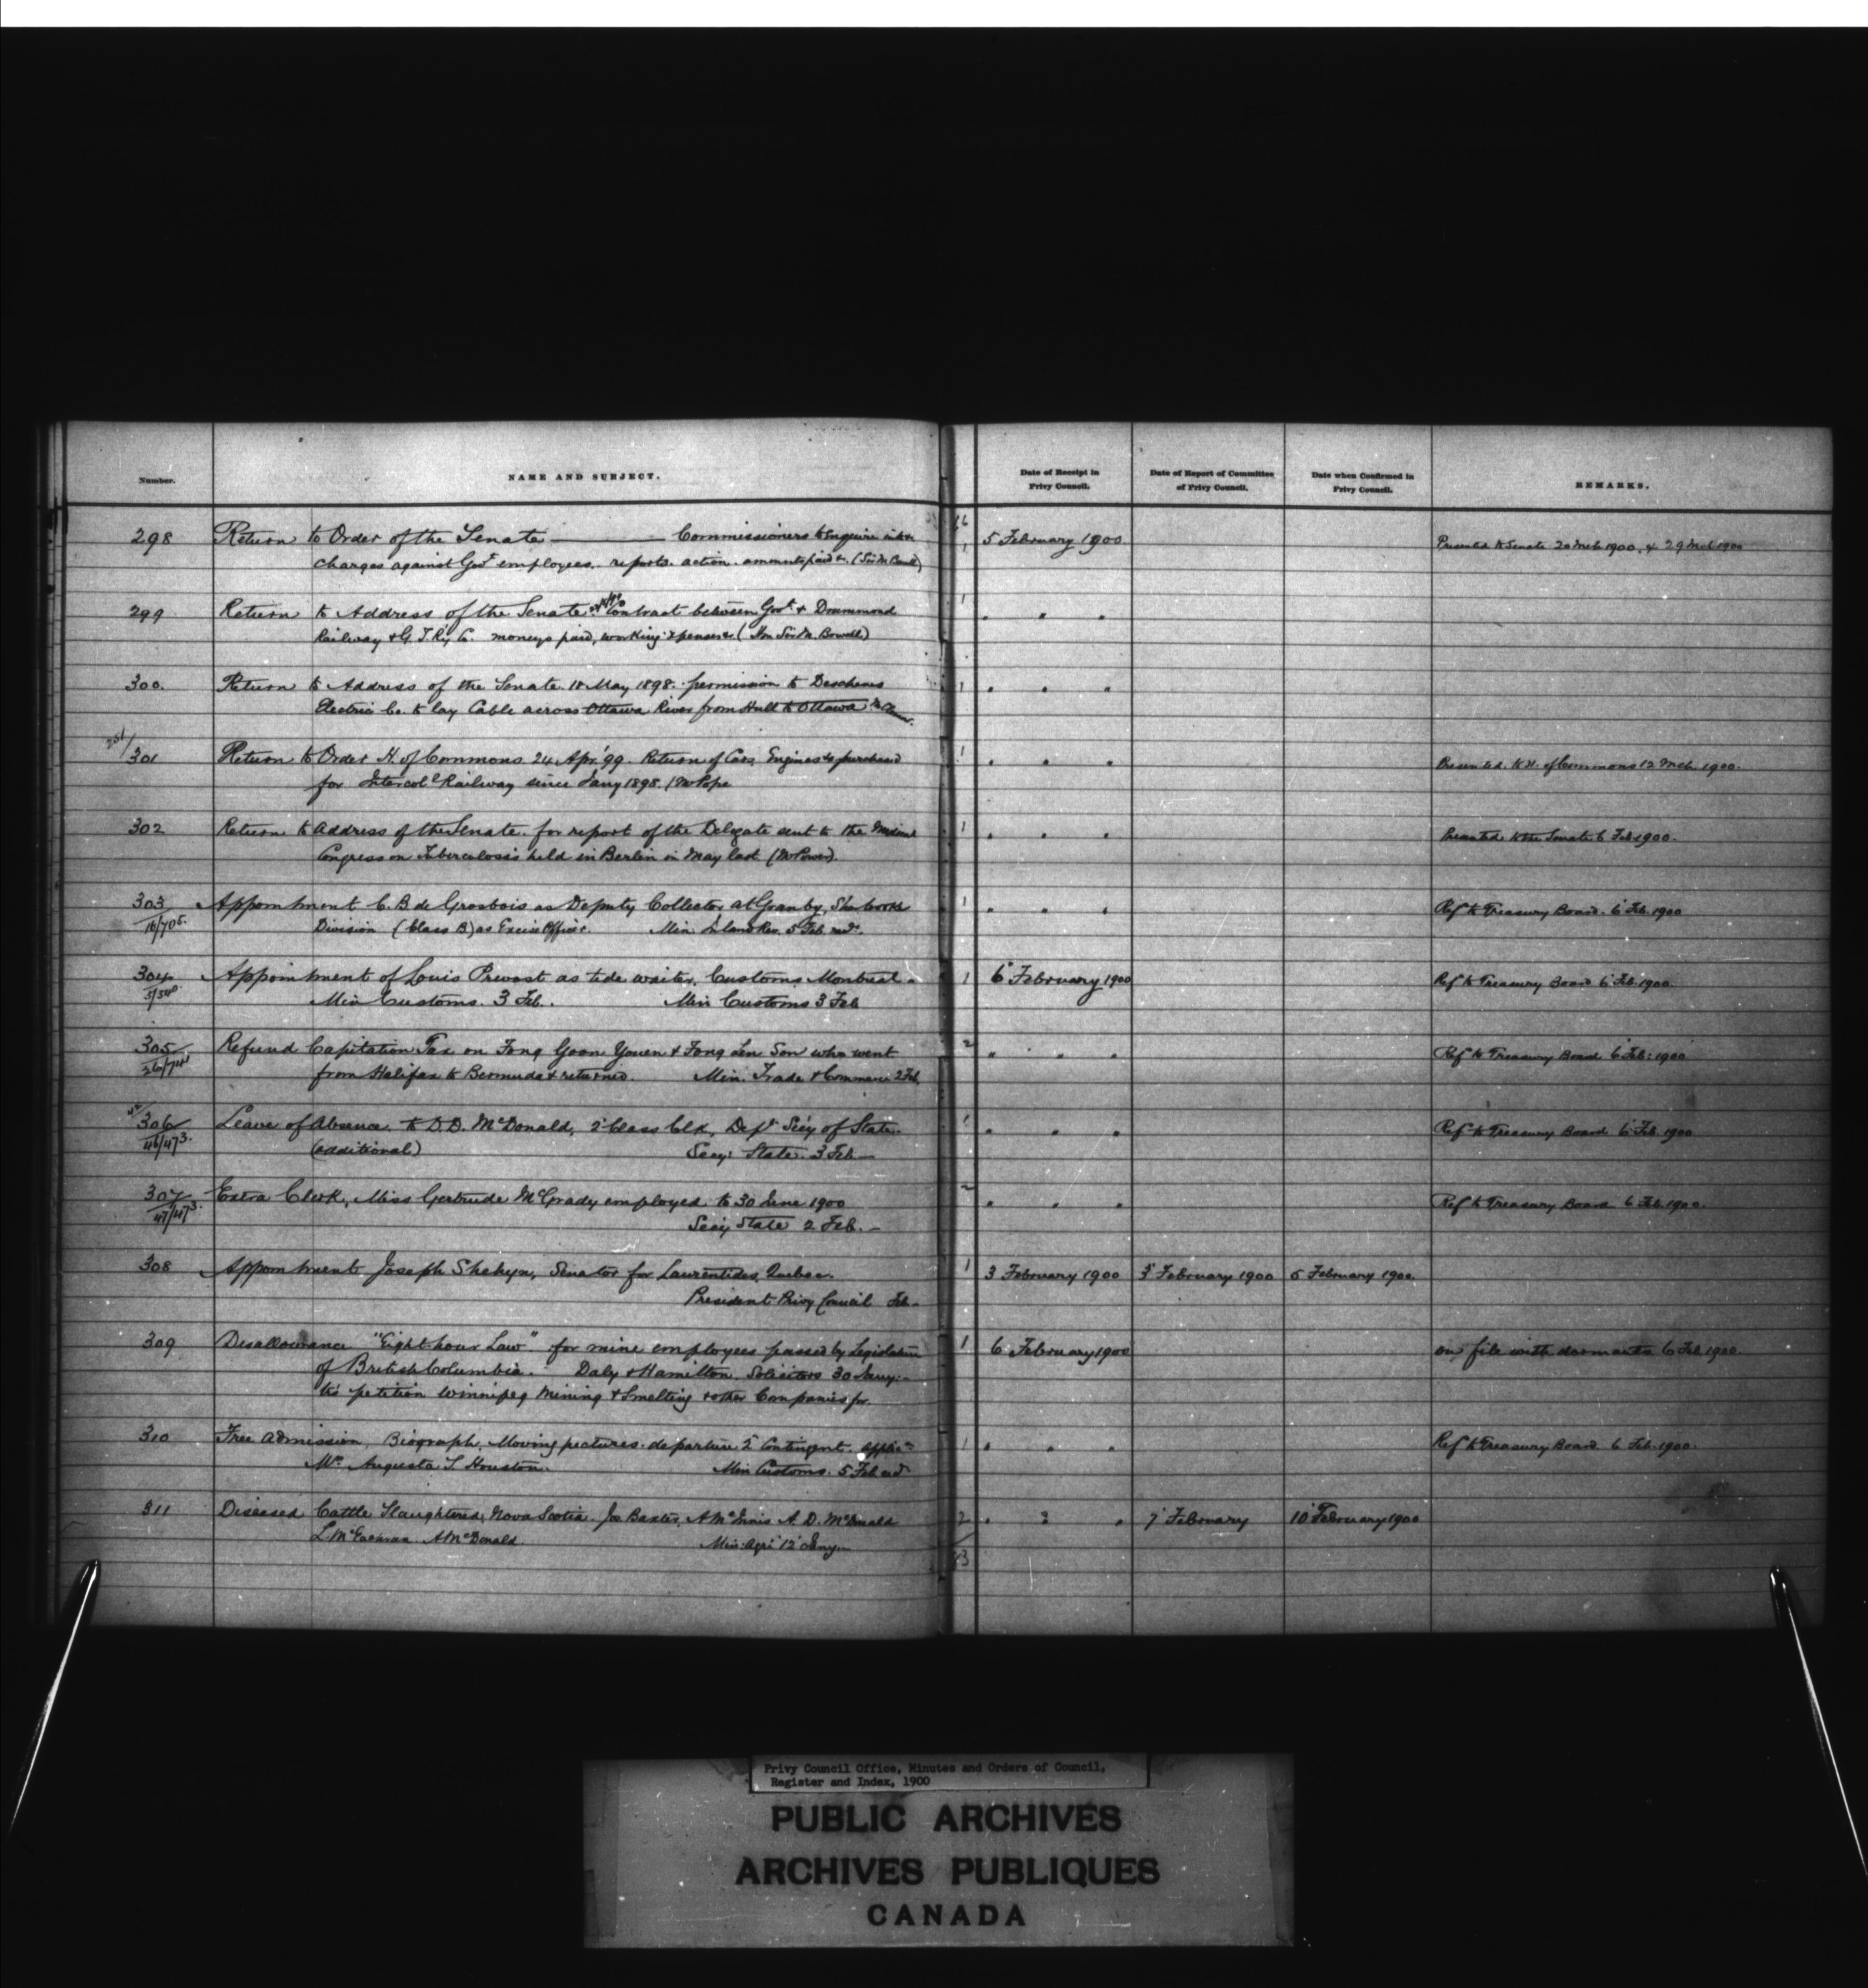 Number.
NAME AND SUBJECT.
Date of Receipt in
Privy Council.
Date of Report of Committee
of Privy Council.
Date when Confirmed in
Privy Council.
REMARKS.
298 Return to Order of the Senate — Commissioners to enquire into 1 5 February 1900 Presented to Senate 20 Mch 1900, & 29 Mch 1900
charges against Govt employees. reports. action. amounts paid &c. (Sir M. Bowell)
299 Return to Address of the Senate Contract between Govt & Drummond 1 " " "
Railway & G. T. Ry Co. moneys paid, working expenses &c (Hon Sir M. Bowell)
300. Return to Address of the Senate 18 May 1898. permission to Deschenes 1 " " "
Electric Co. to lay Cable across Ottawa River from Hull to Ottawa
301 Return to Order H. of Commons 24 Apr. '99. Return of Cars, Engines &c purchased 1 " " " Presented to H. of Commons 12 Mch. 1900.
for Intercol Railway since Jany 1898. (Mr Pope
302 Return to Address of the Senate. for report of the Delegate sent to the 1 " " " Presented to the Senate 6 Feb 1900.
Congress on Tuberculosis held in Berlin in May last (Mr Power).
303 Appointment C. B. de Grosbois as Deputy Collector at Granby, Sherbrooke 1 " " " Ref to Treasury Board. 6 Feb. 1900
16/705. Division (Class B) as Excise Officer. Min. Inland Rev. 5 Feb. recd.
304 Appointment of Louis Prevost as tide waiter, Customs Montreal - 1 6 February 1900 Ref to Treasury Board 6 Feb. 1900.
Min Customs. 3 Feb. Min Customs 3 Feb
305 Refund Capitation Tax on Fong Goon Youen & Fong Len Son who went 2 " " " Ref to Treasury Board 6 Feb: 1900
from Halifax to Bermuda & returned. Min. Trade & Commerce 2 Feb
306 Leave of Absence. to D.D. McDonald, 2 Class Clk, Dept Secy of State 1 " " " Ref to Treasury Board 6 Feb. 1900
46/473. (additional) Secy: State. 3 Feb —
307 Extra Clerk, Miss Gertrude McGrady employed to 30 June 1900 2 " " " Ref to Treasury Board 6 Feb. 1900.
47/473. Secy State 2 Feb. —
308 Appointment Joseph Shehyn, Senator for Laurentides, Quebec. 1 3 February 1900 3 February 1900 5 February 1900.
President Privy Council Feb -
309 Disallowance "Eight-hour Law" for mine employees passed by Legislature 1 6 February 1900 on file with 6 Feb 1900.
of British Columbia. Daly & Hamilton, Solicitors 30 Jany: -
to petition Winnipeg Mining & Smelting & other Companies for.
310 Free Admission, Biograph, Moving pictures. departure 2 Contingent. 1 " " " Ref to Treasury Board 6 Feb. 1900.
Augusta S Houston. Min Customs. 5 Feb recd
311 Diseased Cattle Slaughtered, Nova Scotia. Jos Baxter, A McInnis A. D. McDonald 2 " " " 7 February 10 February 1900
L McEachran A McDonald. Min: Agri 12 Jany —
Privy Council Office, Minutes and Orders of Council,
Register and Index, 1900
PUBLIC ARCHIVES
ARCHIVES PUBLIQUES
CANADA